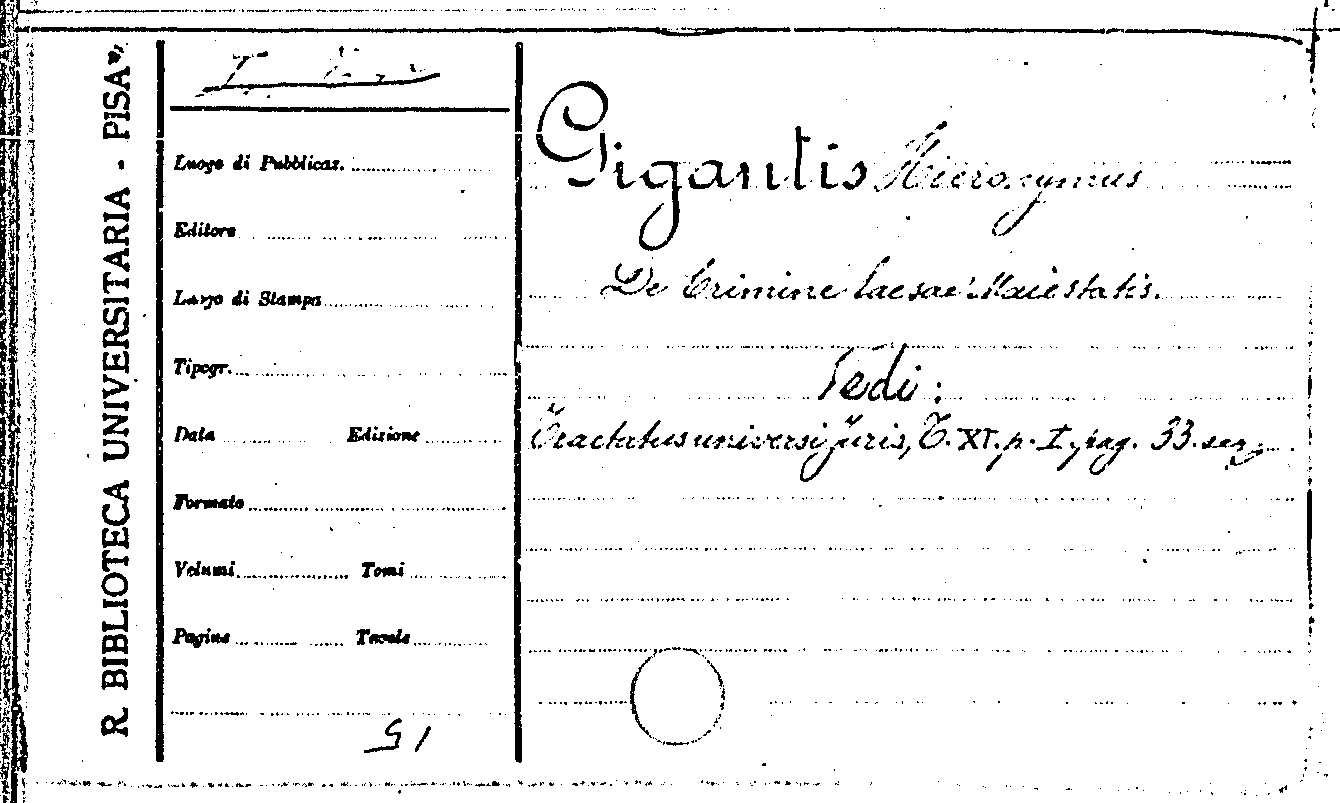 R. BIBLIOTECA UNIVERSITARIA - PISA
Luogo di Pubblicaz.
Editore
Luogo di Stampa
Tipogr.
Data Edizione
Formato
Volumi Tomi
Pagine Tavole
51
Gigantis Hieronymus
De Crimine laesae Maiestatis.
Vedi:
Tractatus universi Juris, T. XI. p. I, pag. 33. seq.